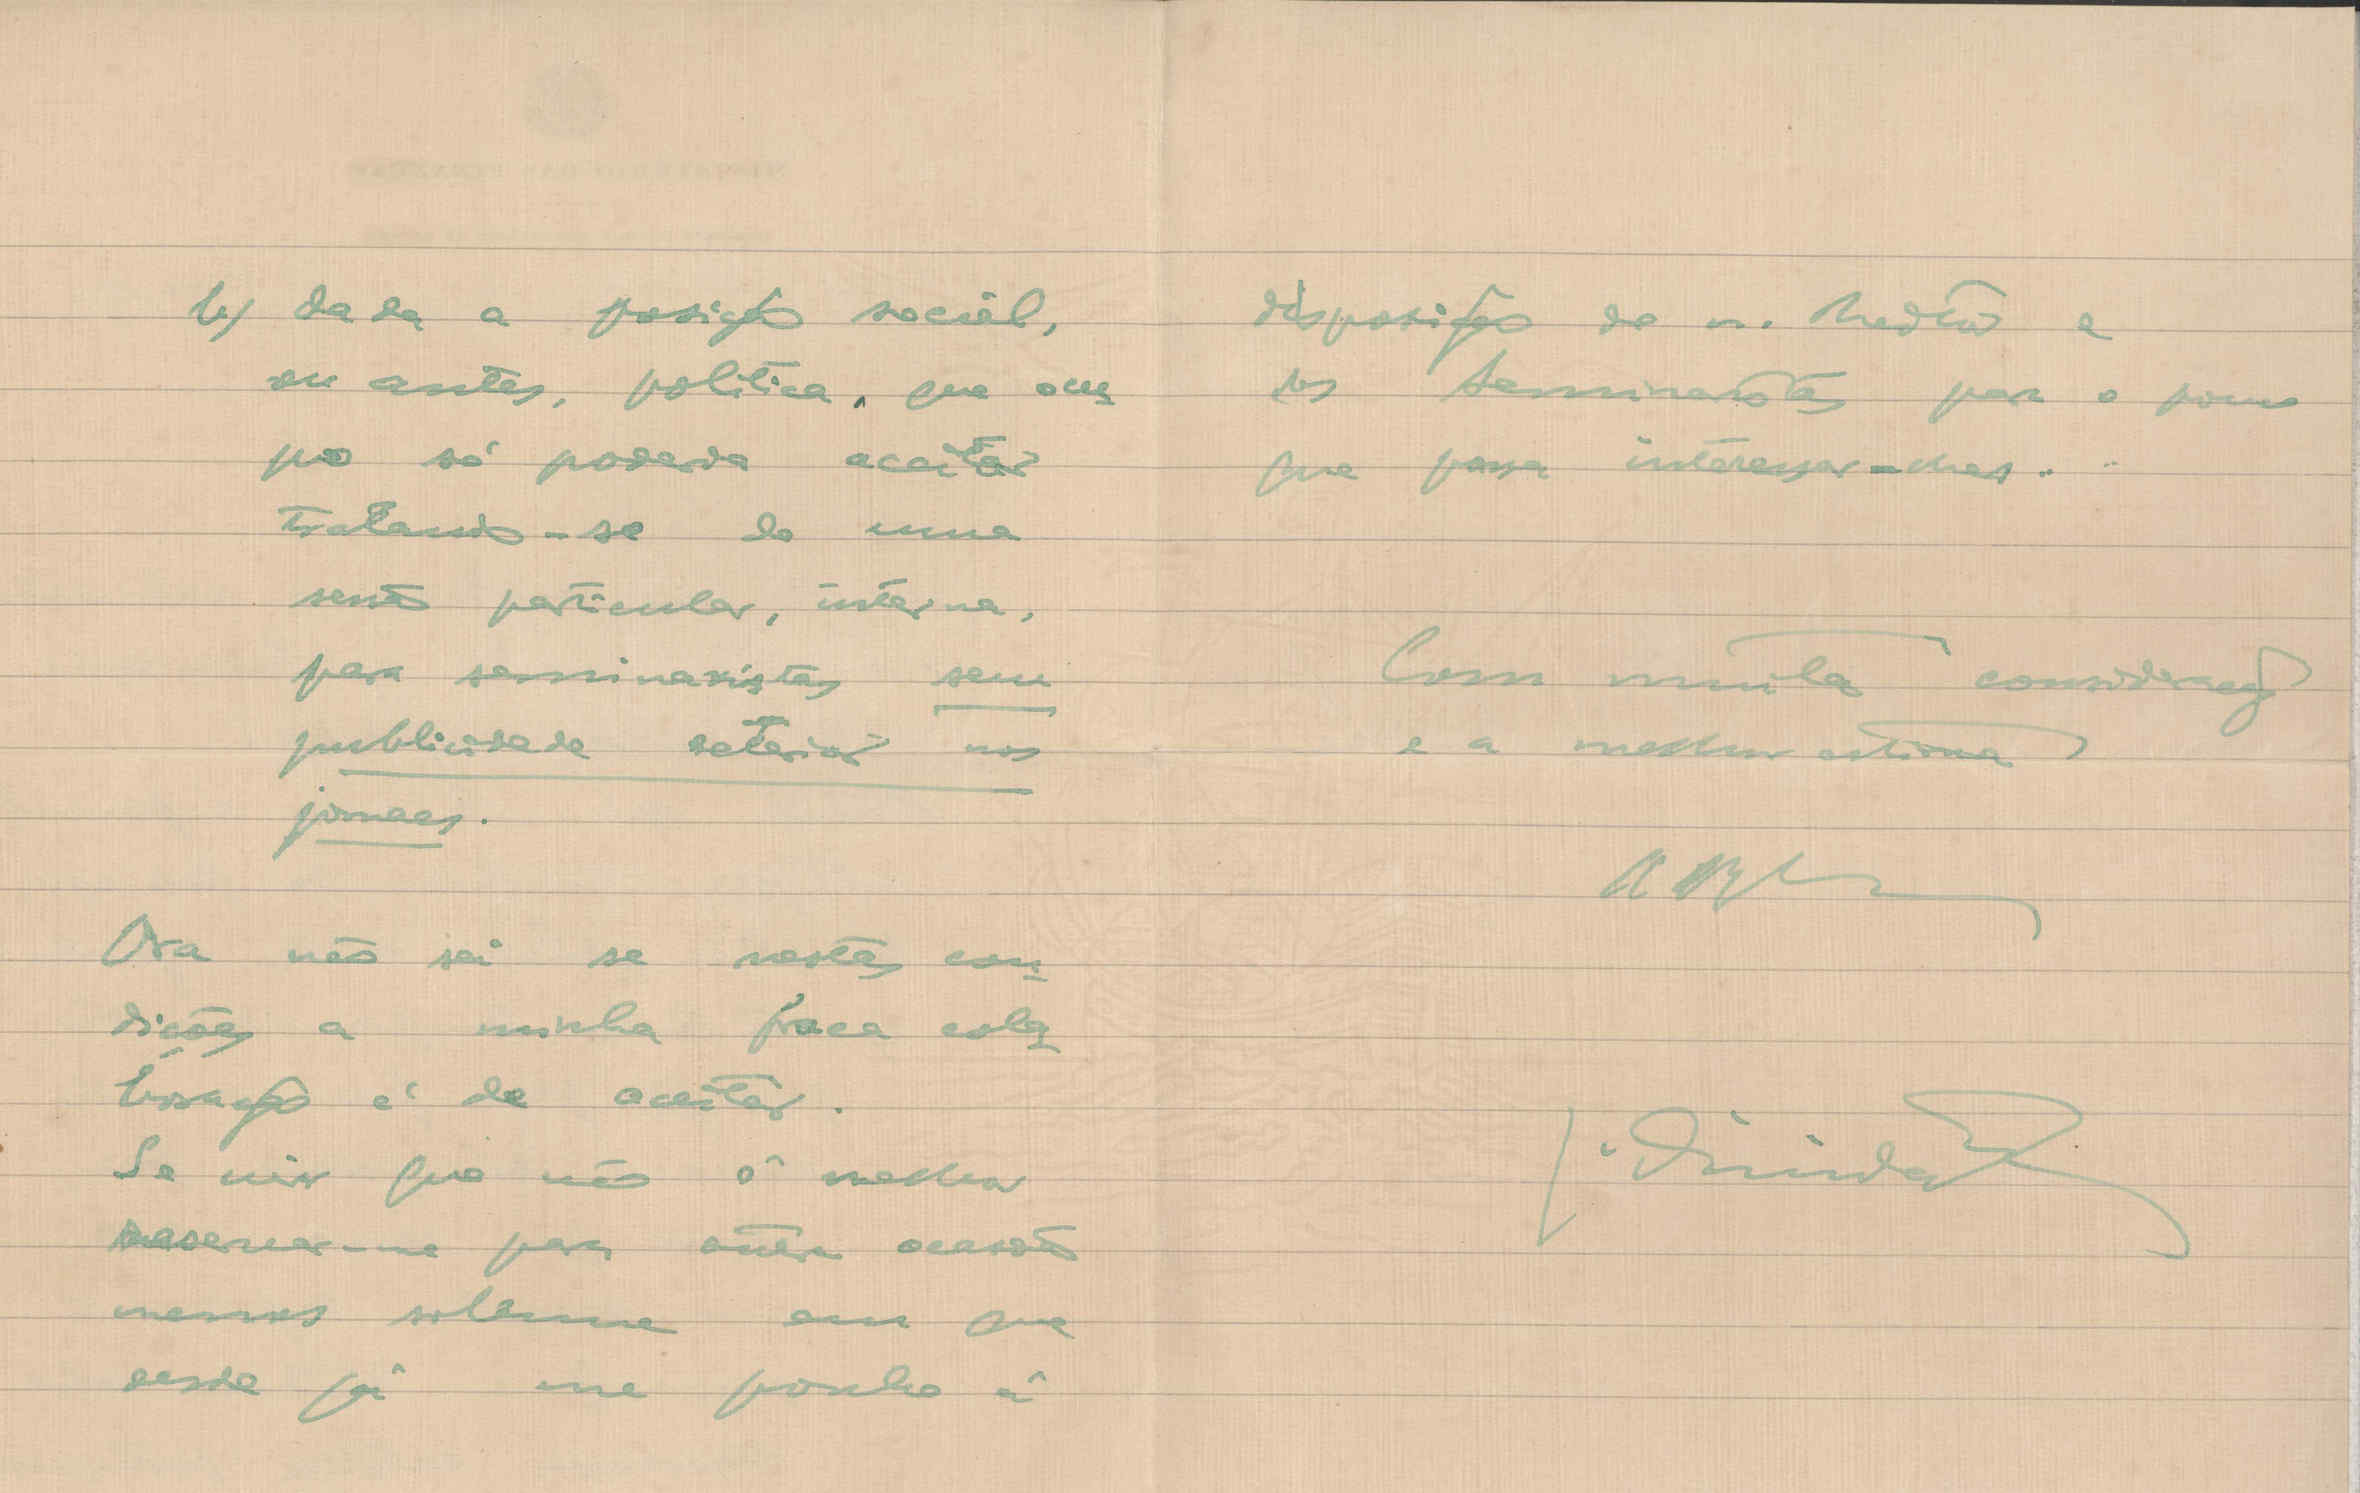 b) dada a posição social,
ou antes, politica, que ocu
po só poderia aceitar
tratando-se de uma
sessão particular, interna,
para seminaristas sem
publicidade exterior nos
jornaes.
Ora não sei se nestas con
dições a minha fraca cola
boração é de aceitar.
Se vir que não é melhor
reservar-me para outra ocasião
menos solemne em que
desde já me ponho á
disposição do
dos Seminaristas para o pouco
que possa interessar-lhes..
Com muita consideração
e a melhor estima